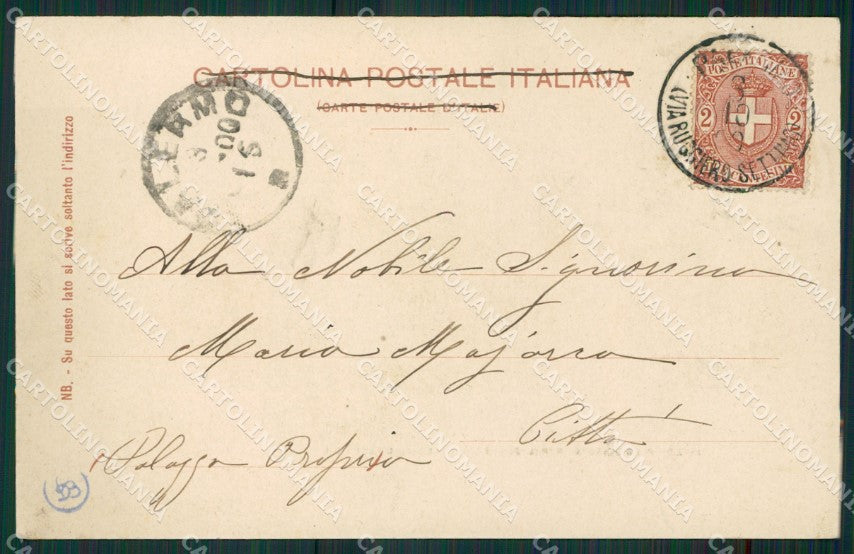 CARTOLINA POSTALE ITALIANA
(CARTE POSTALE D'ITALIE)
POSTE ITALIANE
2 2
(VIA RUGGIERO SETTIMO)
PALERMO
NB. - Su questo lato si scrive soltanto l'indirizzo
Alla Nobile Signorina
Maria Majorca
Città
Palazzo Proprio
CARTOLINOMANIA